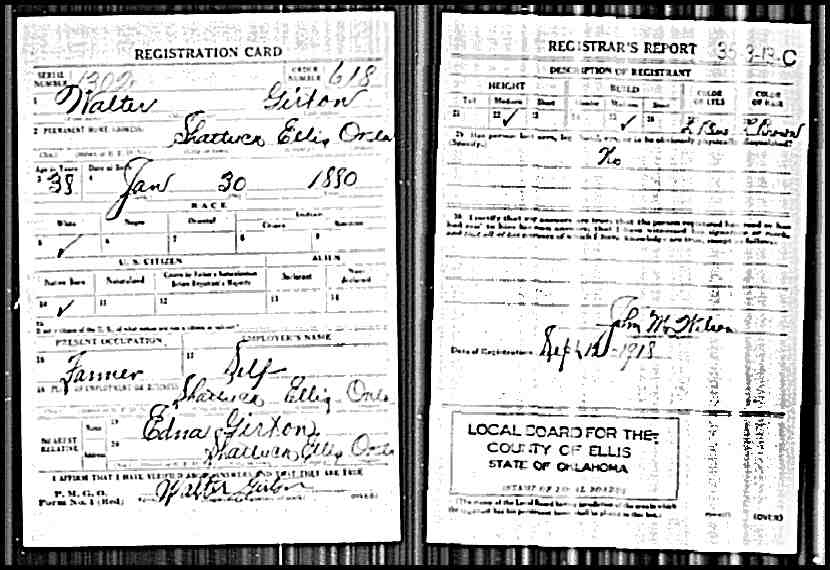 REGISTRATION CARD
SERIAL NUMBER 1302
ORDER NUMBER 618
1 Walter Girton
2 PERMANENT HOME ADDRESS:
Shattuck Ellis Okla
Age in Years Date of Birth
3 38 4 Jan 30 1880
RACE
White Negro Oriental Indian
Citizen Noncitizen
5 ✓ 6 7 8 9
U. S. CITIZEN ALIEN
Native Born Naturalized Citizen by Father's Naturalization Before Registrant's Majority Declarant Non-declarant
10 ✓ 11 12 13 14
15 If not a citizen of the U. S., of what nation are you a citizen or subject?
PRESENT OCCUPATION EMPLOYER'S NAME
16 Farmer 17 Self
18 PLACE OF EMPLOYMENT OR BUSINESS
Shattuck Ellis Okla
NEAREST RELATIVE
Name 19 Edna Girton
Address 20 Shattuck Ellis Okla
I AFFIRM THAT I HAVE VERIFIED ABOVE ANSWERS AND THAT THEY ARE TRUE
P. M. G. O.
Form No. 1 (Red) Walter Girton (OVER)
REGISTRAR'S REPORT 35 3-13 C
DESCRIPTION OF REGISTRANT
HEIGHT BUILD COLOR OF EYES COLOR OF HAIR
Tall Medium Short Slender Medium Stout
21 22 ✓ 23 24 25 ✓ 26 Brown
29 Has person lost arm, leg, hand, eye, or is he obviously physically disqualified? (Specify.)
No
30 I certify that my answers are true; that the person registered has read or has had read to him his own answers; that I have witnessed his signature or mark, and that all of his answers of which I have knowledge are true, except as follows:
John M. Wilson
Date of Registration Sept 12 - 1918
LOCAL BOARD FOR THE
COUNTY OF ELLIS
STATE OF OKLAHOMA
(STAMP OF LOCAL BOARD)
(The stamp of the Local Board having jurisdiction of the area in which
the registrant has his permanent home shall be placed in this box.)
(OVER)